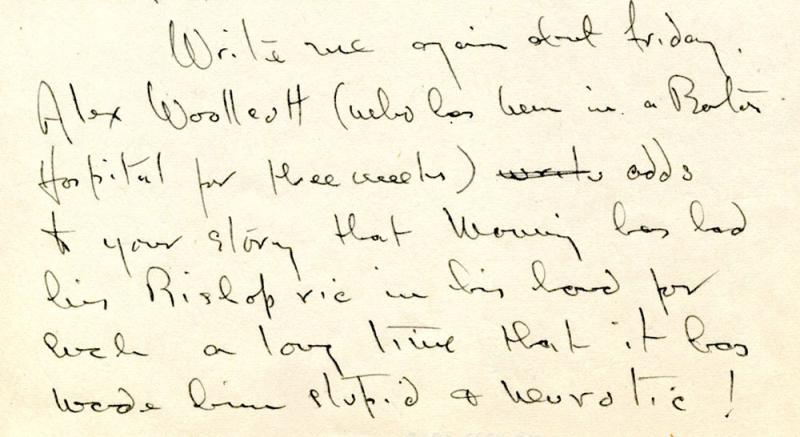 Write me again about Friday.
Alex Woollcott (who has been in a Boston
Hospital for three weeks) writes adds
to your story that Manning has had
his Bishopric in his hand for
such a long time that it has
made him stupid & neurotic!